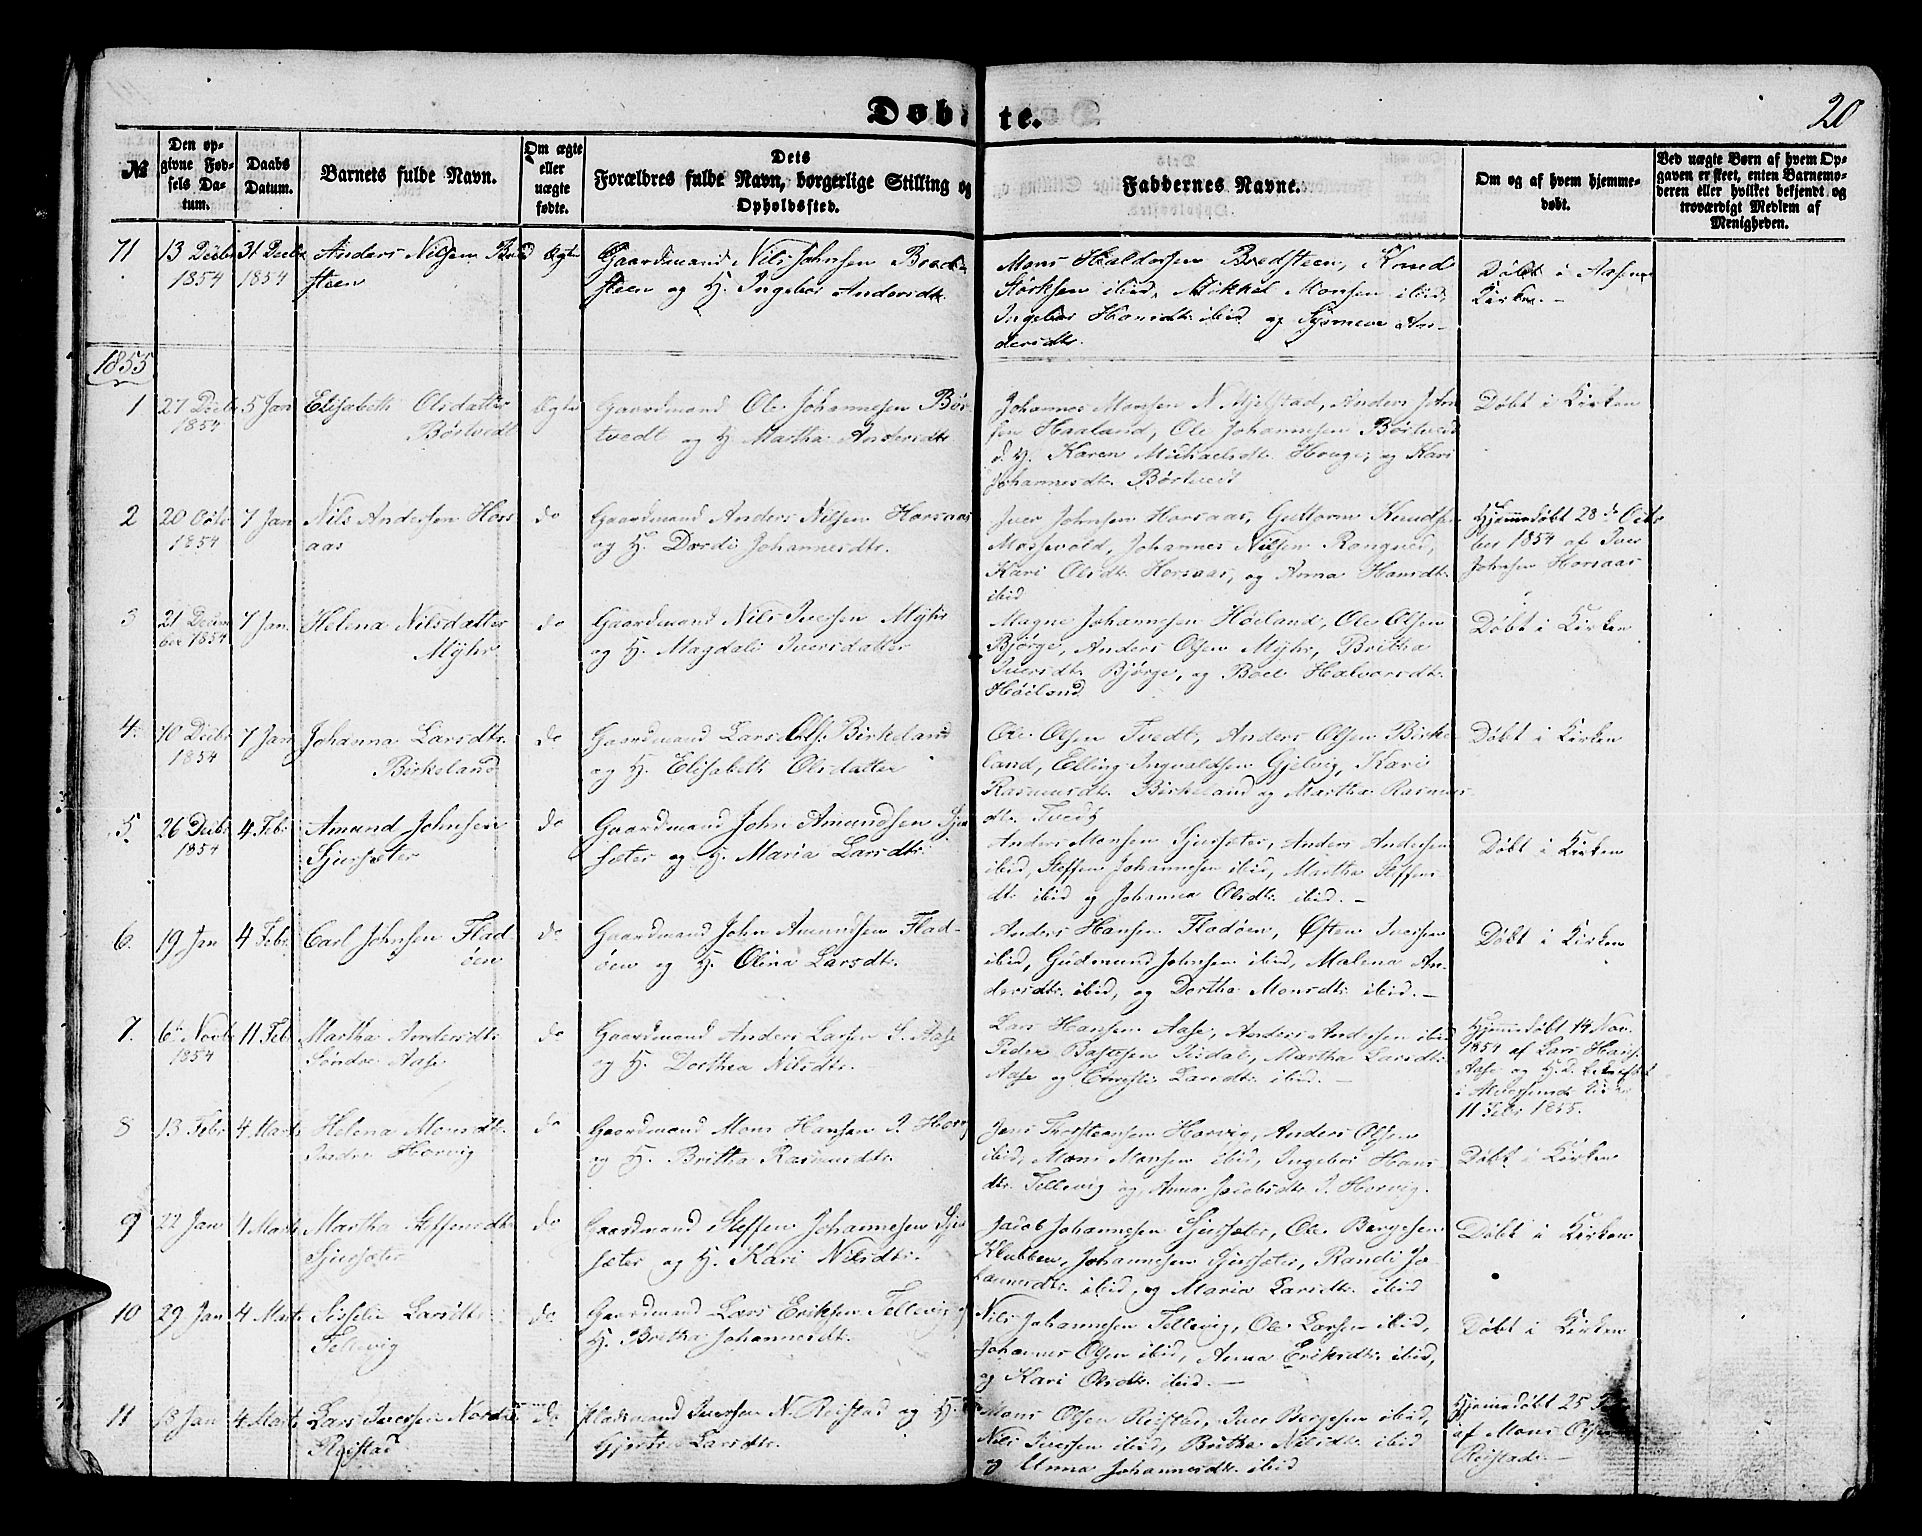 Døbte.
20
№
Den op-
givne Fød-
sels Da-
tum.
Daabs
Datum.
Barnets fulde Navn.
Om ægte
eller
uægte
fødte.
Dets
Forældres fulde Navn, borgerlige Stilling og
Opholdssted.
Faddernes Navne.
Om og af hvem hjemme-
døbt.
Ved uægte Børn af hvem Op-
gaven er skeet, enten Barnemo-
deren eller hvilket bekjendt og
troværdigt Medlem af
Menigheden.
71
13 Decbr
1854
31 Decbr
1854
Anders Nilsen Bred
steen
Ægte
Gaardmand Nils Johnsen Bred-
steen og H. Ingebor Andersdtr.
Mons Haldorsen Bredsteen, Knud
Størksen ibid, Mikkel Monsen ibid,
Ingebor Hansdtr. ibid og Synneve An-
dersdtr.
Døbt i Aasene
Kirke.—
1855
1
27 Decbr
1854
5 Jan
Elisabeth Olsdatter
Børtvedt
Ægte
Gaardmand Ole Johannesen Bør-
tvedt og H. Martha Andersdtr.
Johannes Monsen N. Mjelstad, Anders John
sen Haaland, Ole Johannesen Børtveid
d. H. Karen Michaelsdtr. Houge, og Kari
Johannesdtr. Børtveit
Døbt i Kirken
2
20 Octb
1854
7 Jan
Nils Andersen Hors
aas
do
Gaardmand Anders Nilsen Horsaas
og H. Dordi Johannesdtr.
Iver Johnsen Horsaas, Guttorm Knudsen
Mossevold, Johannes Nilsen Rongved,
Kari Olsdtr. Horsaas, og Anna Hansdtr.
ibid
Hjemmedøbt 28de Octo
ber 1854 af Iver
Johnsen Horsaas
3
21 Decem
ber 1854
7 Jan.
Helena Nilsdatter
Myhr
do
Gaardmand Nils Iversen Myhr
og H. Magdali Iversdatter
Magne Johannesen Høiland, Ole Olsen
Bjørge, Anders Olsen Myhr, Britha
Iversdtr. Bjørge, og Boel Halvorsdtr.
Høiland
Døbt i Kirken
4.
10 Decbr
1854
7 Jan
Johanna Larsdtr.
Birkeland
do
Gaardmand Lars Ols. Birkeland
og H. Elisabeth Olsdatter
Ole Olsen Tvedt, Anders Olsen Birke-
land, Elling Ingvaldsen Gjelvig, Kari
Rasmusdtr. Birkeland og Martha Rasmus-
dtr. Tvedt
Døbt i Kirken
5.
26 Decbr
1854
4 Febr
Amund Johnsen
Sjursæter
do
Gaardmand John Amundsen Sjur
sæter og H. Maria Larsdtr.
Anders Monsen Sjursæter, Anders Andersen
ibid, Steffen Johannesen ibid, Martha Steffens
dtr. ibid og Johanna Olsdtr. ibid.—
Døbt i Kirken
6.
19 Jan
4 Febr.
Carl Johnsen Flad
øen
do
Gaardmand John Amundsen Flad-
øen og H. Olina Larsdtr.
Anders Hansen Fladøen, Østen Iversen
ibid, Gudmund Johnsen ibid, Malena An-
dersdtr. ibid, og Dortha Monsdtr. ibid.—
Døbt i Kirken
7.
6te Novbr
1854
11 Febr
Martha Andersdtr.
Søndre Aase
do
Gaardmand Anders Larsen S. Aase
og H. Dorthea Nilsdtr.
Lars Hansen Aase, Anders Andersen ibid
Aase og Larsdtr. ibid.—
Hjemmedøbt 14 Nov.
1854 af Lars Hans.
11 Febr 1855.
8
13 Febr
4 Marts
Helena Monsdtr.
Søndre Horvig
do
Gaardmand Mons Hansen S. Horvig
og H. Britha Rasmusdtr.
Jens Thorsteensen Horvig, Anders Olsen
ibid, Mons Monsen ibid, Ingebor Hans
dtr. Tellevig og Anna Jacobsdtr. S. Horvig.
Døbt i Kirken
9
22 Jan
4 Marts
Martha Steffensdtr
Sjursæter
do
Gaardmand Steffen Johannesen Sjur
sæter og H. Kari Nilsdtr.
Jacob Johannesen Sjursæter, Ole Børgesen
Klubben, Johannesen Sjursæter, Randi Jo-
hannesdtr. ibid, og Maria Larsdtr. ibid
Døbt i Kirken
10
29 Jan
4 Marts
Sisselie Larsdtr.
Tellevig
do
Gaardmand Lars Eriksen Tellevig og
H. Britha Johannesdtr.
Nils Johannesen Tellevig, Ole Larsen ibid,
Johannes Olsen ibid, Anna Eriksdtr. ibid,
og Kari Olsdtr. ibid.—
Døbt i Kirken
11
18 Jan
4 Marts
Lars Iversen Nordre
Reistad
do
Pladsmand Iversen N. Reistad og H.
Gjertr. Larsdtr.
Mons Olsen Reistad, Iver Børgesen ibid,
Nils Iversen ibid, Britha Nilsdtr. ibid
og Anna Johannesdtr. ibid
Hjemmedøbt 25
af Mons Olsen
Reistad.—